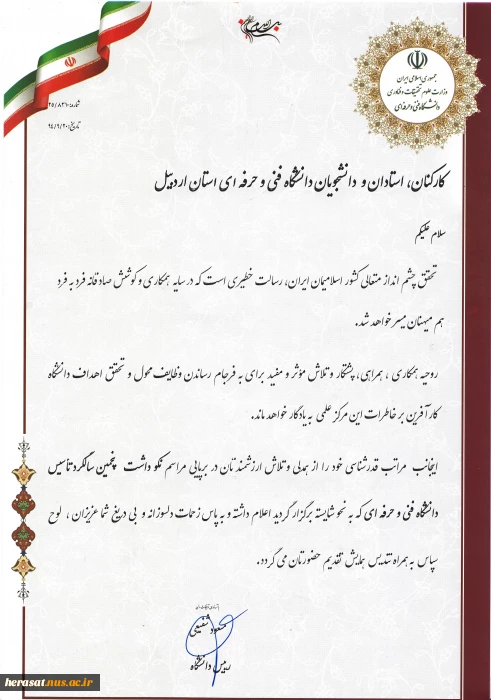 جمهوری اسلامی ایران
وزارت علوم تحقیقات و فناوری
دانشگاه فنی و حرفه ای
شماره: ۲۵/۸۳۱۰
تاریخ: ۹۴/۶/۲۰
کارکنان، استادان و دانشجویان دانشگاه فنی و حرفه ای استان اردبیل
سلام علیکم
تحقق چشم انداز متعالی کشور اسلامیمان ایران، رسالت خطیری است که در سایه همکاری و کوشش صادقانه فرد به فرد
هم میهنان میسر خواهد شد.
روحیه همکاری ، همراهی، پشتکار و تلاش مؤثر و مفید برای به فرجام رساندن وظایف محول و تحقق اهداف دانشگاه
کارآفرین بر خاطرات این مرکز علمی به یادگار خواهد ماند.
اینجانب مراتب قدرشناسی خود را از همدلی و تلاش ارزشمندتان در برپایی مراسم نکو داشت پنجمین سالگرد تأسیس
دانشگاه فنی و حرفه ای که به نحو شایسته برگزار گردید اعلام داشته و به پاس زحمات دلسوزانه و بی دریغ شما عزیزان ، لوح
سپاس به همراه تندیس همایش تقدیم حضورتان می گردد.
مسعود شفیعی
رییس دانشگاه
herasat.nus.ac.ir